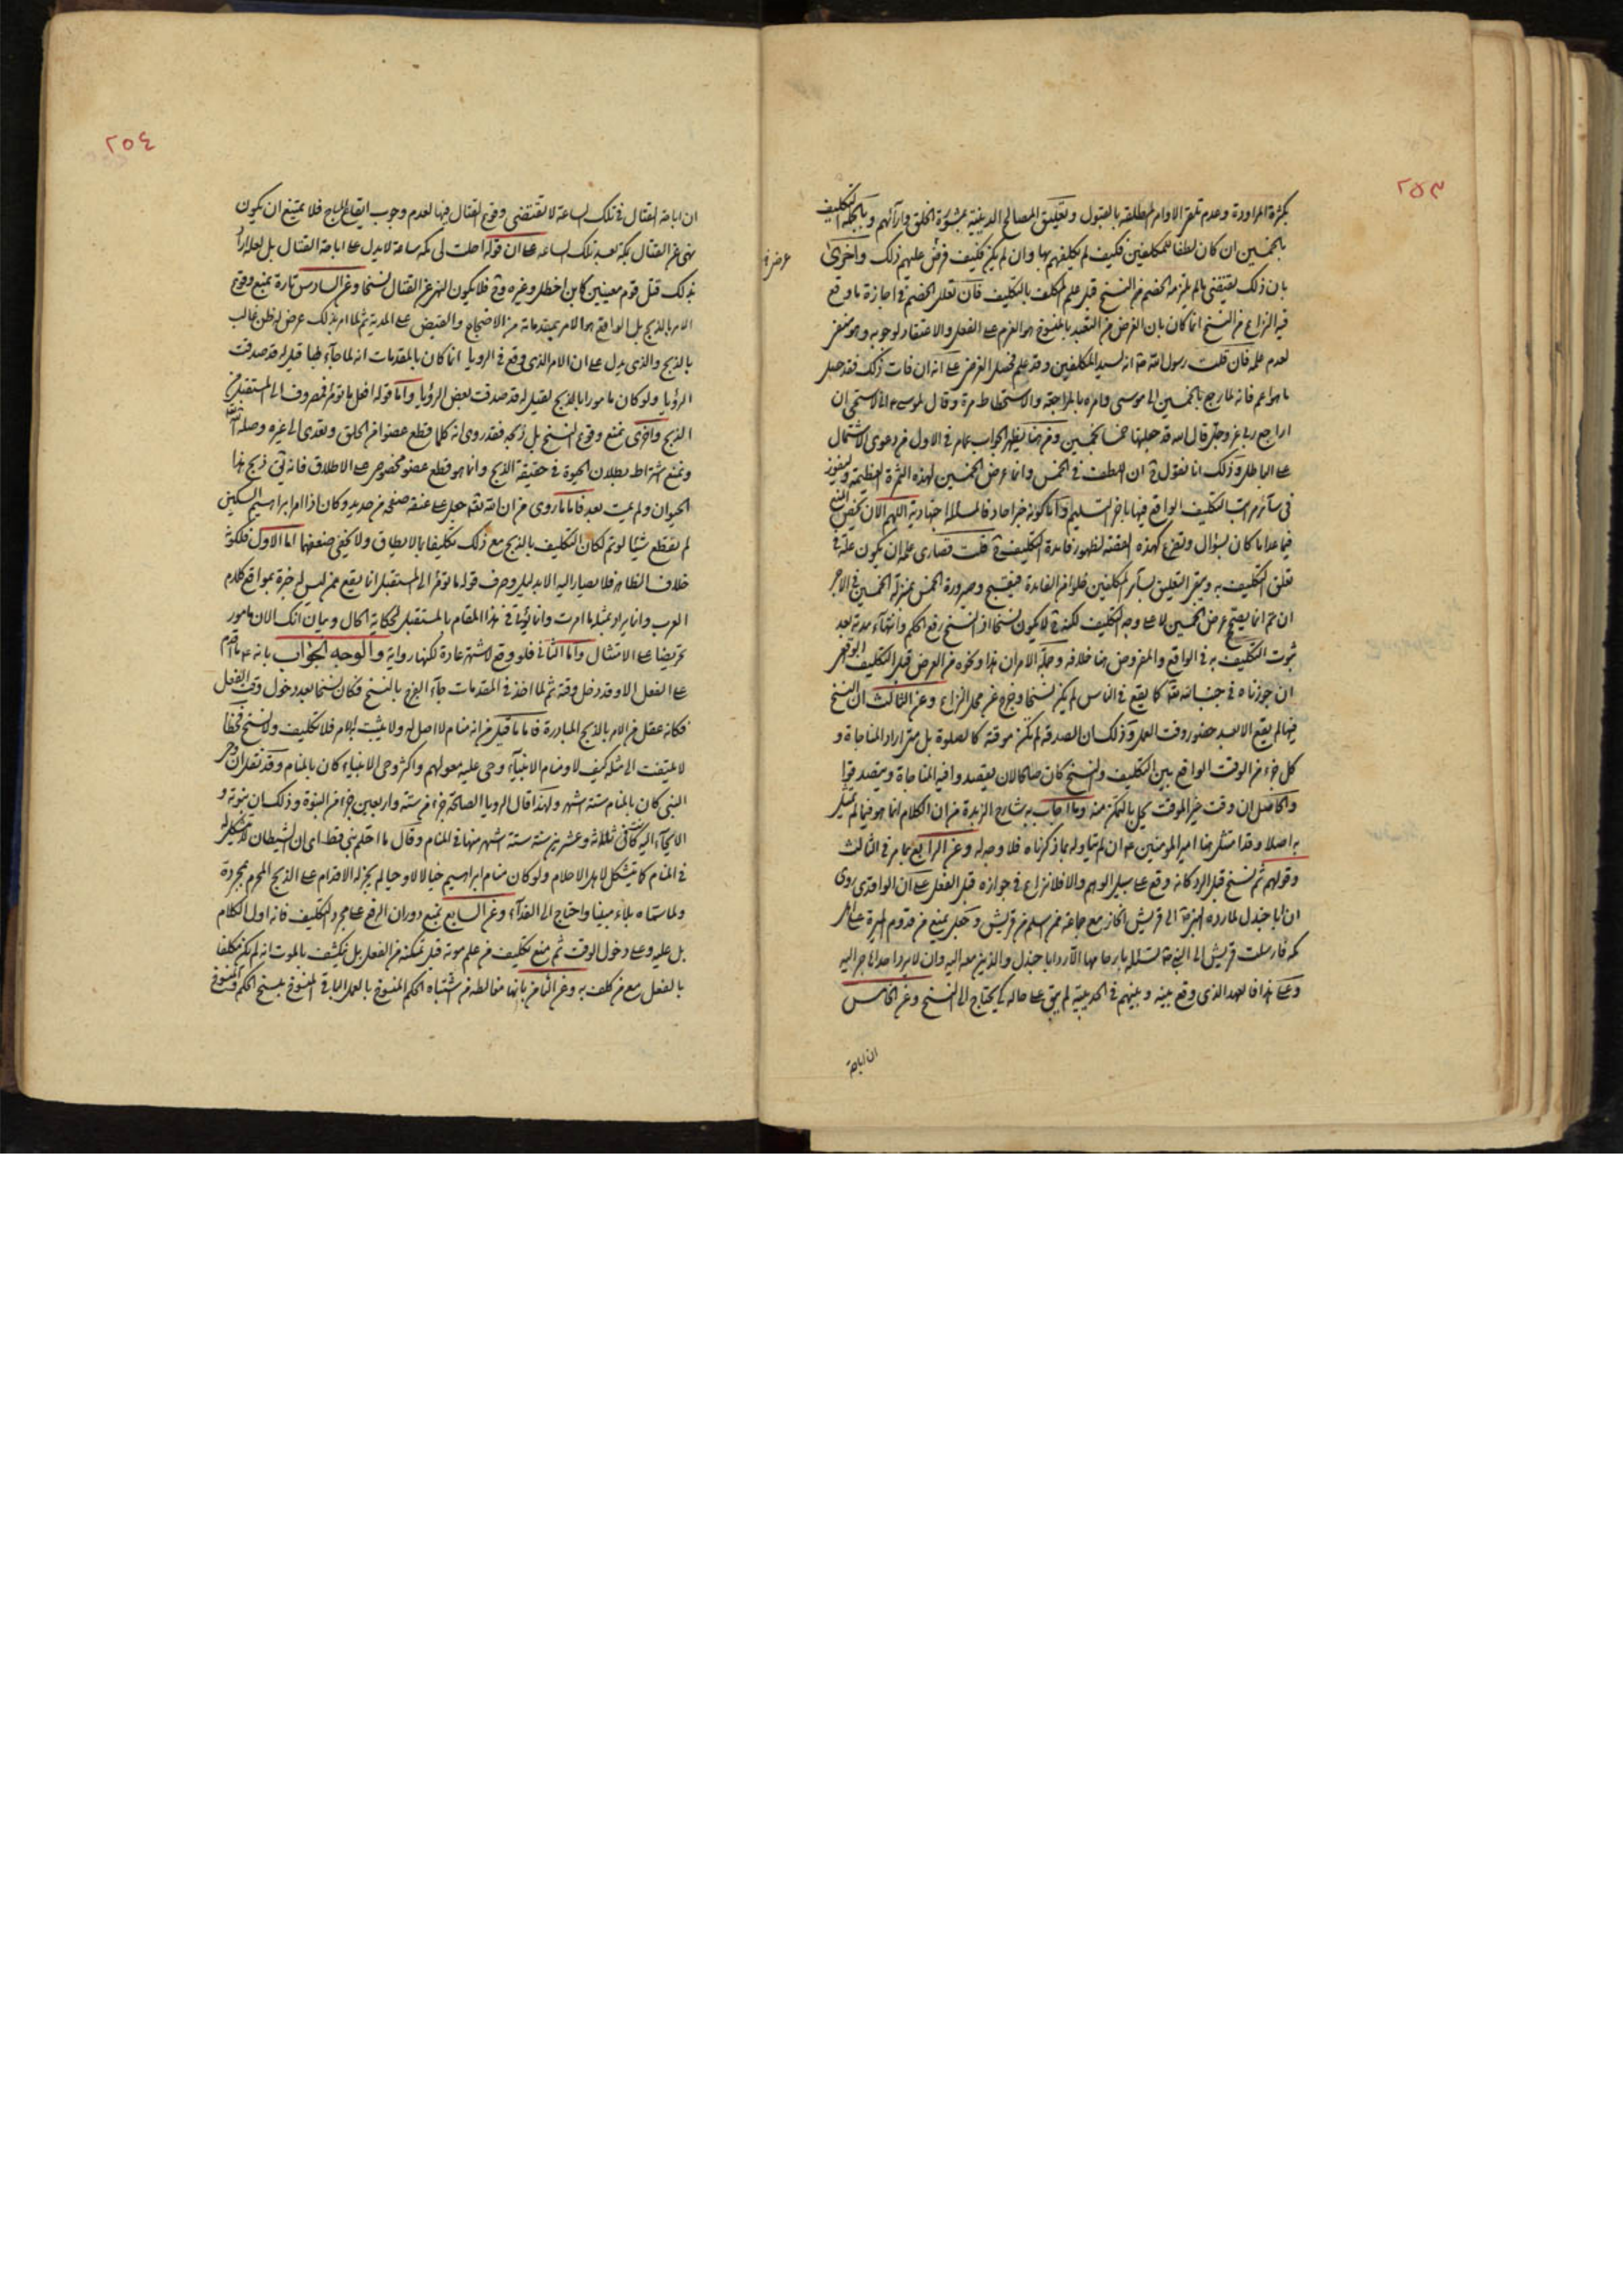 ٢٥٣
بكثرة المراودة وعدم تلقى الاوامر المطلقة بالقبول وتعليق المصالح الدينية بمشورة الخلق وارائهم وبالجملة التكليف
بالخمسين ان كان لطفا للمكلفين فكيف لم يكلفهم بها وان لم يكن فكيف فرض عليهم ذلك واخرى
بان ذلك يقتضى ما لم يلتزمه الخصم من النسخ قبل علم المكلف بالتكليف فان تعلل الخصم في اجازة ما وقع
فيه النزاع من النسخ انما كان بان الغرض من التعبد بالمنسوخ هو العزم على الفعل والاعتقاد لوجوبه وهو منتف
لعدم علمه فان قلت رسول الله ص انه لسيد المكلفين وقد علم فحصل الغرض على انه ان فات ذلك فقد حصل
ما هو اعم فانه لما رجع بالخمسين الى موسى وامره بالمراجعة والاستحطاط مرة وقال لموسى انى لاستحيى ان
اراجع ربى عز وجل قال الله قد جعلتها خمسا بخمسين ومن هنا يظهر الجواب عما مر في الاول من دعوى الاشتمال
على الباطل وذلك انا نقول ان اللطف في الخمس وانما عرض الخمسين لهذه الثمرة العظيمة وليفوز
في سائر مراتب التكليف الواقع فيها باجر التسليم واما كونه خبر احاد فالمسألة اجتهادية اللهم الا ان يخص المنع
فيما عدا ما كان بسؤال وتضرع كهذه القضية لظهور فائدة التكليف ح قلت قصارى علمه ان يكون علة في
تعلق التكليف به ويبقى التعليق بسائر المكلفين خلوا من الفائدة فيقبح وصيرورة الخمس بمنزلة الخمسين في الاجر
ان تم انما يصحح عرض الخمسين لا على وجه التكليف لكنه ح لا يكون نسخا اذ النسخ رفع الحكم وانتهاء مدته بعد
ثبوت التكليف به في الواقع والمفروض هنا خلافه وجملة الامر ان هذا ونحوه من العرض قبل التكليف الواقعى
ان جوزناه في جنب الله تعالى كما يقع في الناس لم يكن نسخا وخرج عن محل النزاع وعن الثالث ان النسخ
فيها لم يقع الا بعد حضور وقت العمل وذلك ان الصدقة لم تكن موقتة كالصلوة بل متى اراد المناجاة و
كل جزء من الوقت الواقع بين التكليف والنسخ كان صالحا لان يقصد وافيه المناجاة ويتصدقوا
والحاصل ان وقت غير الموقت يحل بالتمكن منه وما اجاب به شارح الزبدة من ان الكلام انما هو فيما لم يمتثل
به اصلا وقد امتثل هنا امير المؤمنين ع ان لم يتاوله بما ذكرناه فلا وجه له وعن الرابع بما مر في الثالث
وقولهم ثم نسخ قبل الرد كانه وقع على سبيل الوهم والا فلا نزاع في جوازه قبل الفعل على ان الواقدى روى
ان ابا جندل لما رده النبي ص الى قريش انحاز مع جماعة ممن اسلم من قريش وجعل يمنع من قدوم الميرة على اهل
مكة فارسلت قريش الى النبي ص تسئله بارحامها الا رد ابا جندل والذين معه اليه وان لا يرد احدا هاجر اليه
وعلى هذا فالعهد الذى وقع بينه وبينهم في الحديبية لم يبق على حاله كى يحتاج الى النسخ وعن الخامس
ان اباحة
٢٥٤
ان اباحة القتال في تلك الساعة لا يقتضى وقوع القتال فيها لعدم وجوب ايقاع المباح فلا يمتنع ان يكون
نهى عن القتال بمكة بعد تلك الساعة على ان قوله احلت لى مكة ساعة لا يدل على اباحة القتال بل لعله اراد
بذلك قتل قوم معينين كابن اخطل وغيره وح فلا يكون النهى عن القتال نسخا وعن السادس تارة بمنع وقوع
الامر بالذبح بل الواقع هو الامر بمقدماته من الاضجاع والقبض على المدية ثم لما امر بذلك عرض له ظن غالب
بالذبح والذى يدل على ان الامر الذى وقع في الرويا انما كان بالمقدمات انه لما جاء بها قيل له قد صدقت
الرؤيا ولو كان مامورا بالذبح لقيل له قد صدقت بعض الرؤيا واما قوله افعل ما تؤمر فمصروف الى المستقبل من
الذبح واخرى بمنع وقوع النسخ بل ذبحه فقد روى انه كلما قطع عضوا من الحلق وتعدى الى غيره وصله الله تعالى
ونمنع اشتراط بطلان الحيوة في حقيقة الذبح وانما هو قطع عضو مخصوص على الاطلاق فانه يق ذبح هذا
الحيوان ولم يمت بعد فاما ما روى من ان الله تعالى جعل على عنقه صفحة من حديد وكان اذا امر ابراهيم السكين
لم يقطع شيئا لو تم لكان التكليف بالذبح مع ذلك تكليفا بما لا يطاق ولا يخفى ضعفهما اما الاول فلكونه
خلاف الظاهر فلا يصار اليه الا بدليل وصرف قوله ما تؤمر الى المستقبل انما يقع ممن ليس له خبرة بمواقع كلام
العرب وانما يراد بمثله ما امرت وانما يؤتى في هذا المقام بالمستقبل لحكاية الحال وبيان انك الان مامور
تحريضا على الامتثال واما الثانى فلو وقع لاشتهر عادة لكنها رواية والوجه الجواب بانه ع ما اقدم
على الفعل الا وقد دخل وقته ثم لما اخذ في المقدمات جاء الفرج بالنسخ فكان نسخا بعد دخول وقت الفعل
فكانه عقل من الامر بالذبح المبادرة فاما ما قيل من انه منام لا اصل له ولا يثبت به الامر فلا تكليف ولا نسخ فخطأ
لا يلتفت الى مثله كيف لا ومنام الانبياء وحى عليه معولهم واكثر وحى الانبياء كان بالمنام وقد نقل ان وحى
النبى كان بالمنام ستة اشهر ولهذا قال الرويا الصالحة جزء من ستة واربعين جزء من النبوة وذلك ان نبوته و
الايحاء اليه كانتا في ثلاثة وعشرين سنة ستة اشهر منها في المنام وقال ما احتلم نبى قط اى ان الشيطان لا يتشكل له
في المنام كما يتشكل لاهل الاحلام ولو كان منام ابراهيم خيالا لا وحيا لم يجز له الاقدام على الذبح المحرم بمجرده
ولما سماه بلاء مبينا واحتاج الى الفداء وعن السابع بمنع دوران الرفع على مجرد التكليف فانه اول الكلام
بل عليه وعلى دخول الوقت ثم بمنع تكليف من علم موته قبل تمكنه من الفعل بل نكشف بالموت انه لم يكن مكلفا
بالفعل مع من كلف به وعن الثامن بانها مغالطة من اشتباه الحكم المنسوخ بالعمل الباقى المنسوخ بنسخ الحكم والمنسوخ